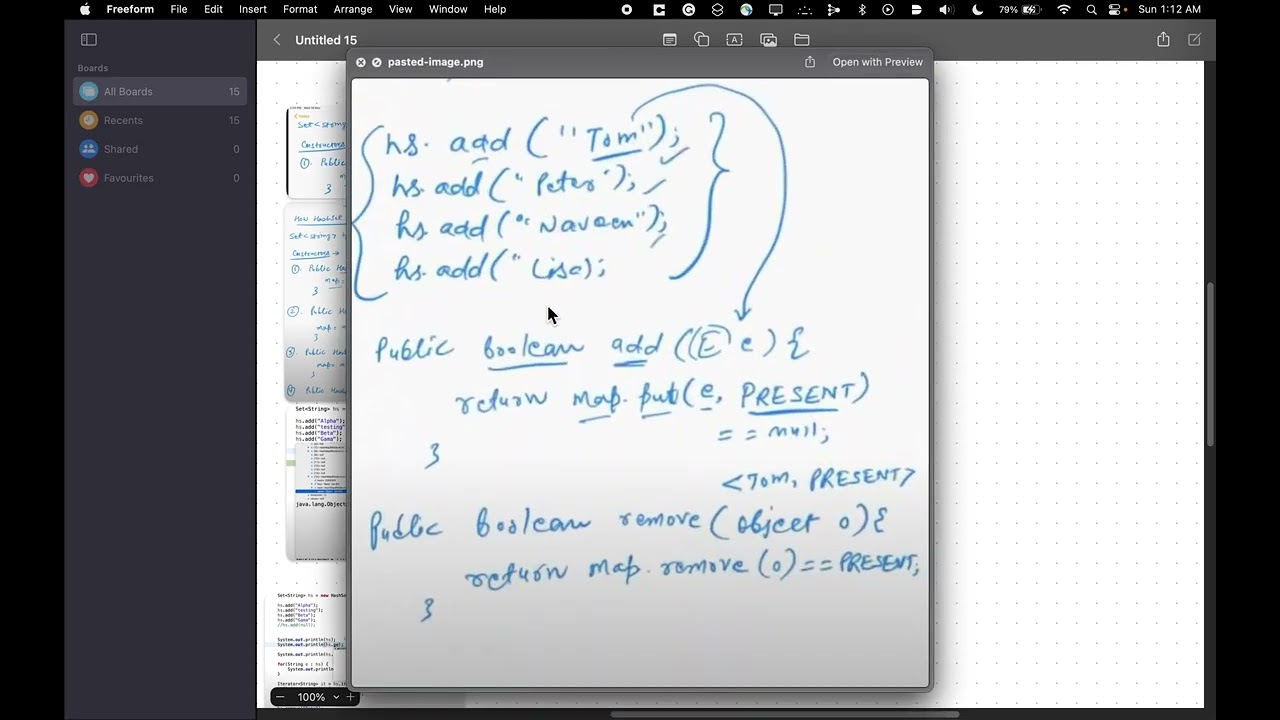 Freeform File Edit Insert Format Arrange View Window Help 79% Sun 1:12 AM
Untitled 15
Boards
All Boards 15
Recents 15
Shared 0
Favourites 0
pasted-image.png Open with Preview
hs. add ("Tom");
hs. add ("Peter");
hs. add ("Naveen");
hs. add ("Lisa);
Public boolean add ((E) e) {
return map. put (e, PRESENT)
== null;
}
<Tom, PRESENT>
Public boolean remove (Object o) {
return map. remove (o) == PRESENT;
}
Set<String
Constructors
①. Public
}
How HashSet
Set<String>
Constructors →
①. Public Ha
map =
}
②. Public H
map =
}
③. Public H
map =
}
④ Public Has
Set<String> hs =
hs.add("Alpha");
hs.add("testing"
hs.add("Beta");
hs.add("Gama");
java.lang.Object
Set<String> hs = new HashS
hs.add("Alpha");
hs.add("testing");
hs.add("Beta");
hs.add("Gama");
//hs.add(null);
System.out.println(hs);
System.out.println(hs.
System.out.println(hs.
for(String e : hs) {
System.out.println
}
Iterator<String> it = hs.i
100%